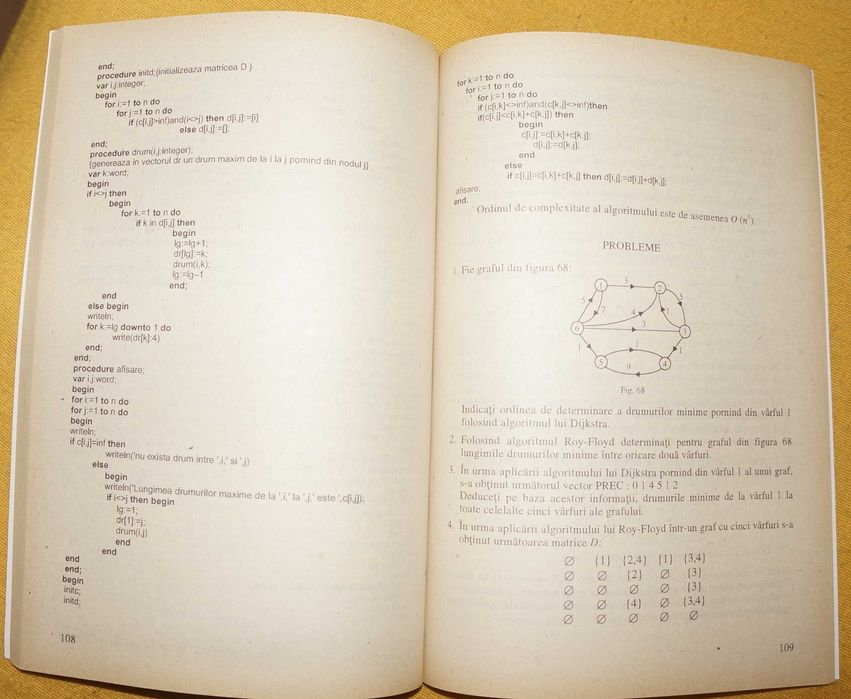 end;
procedure initd;(initializeaza matricea D )
var i,j:integer;
begin
for i:=1 to n do
for j:=1 to n do
if (c[i,j]>inf)and(i<>j) then d[i,j]:=[i]
else d[i,j]:=[];
end;
procedure drum(i,j:integer);
{genereaza in vectorul dr un drum maxim de la i la j pornind din nodul j}
var k:word;
begin
if i<>j then
begin
for k:=1 to n do
if k in d[i,j] then
begin
lg:=lg+1;
dr[lg]:=k;
drum(i,k);
lg:=lg-1
end;
end
else begin
writeln;
for k:=lg downto 1 do
write(dr[k]:4)
end;
end;
procedure afisare;
var i,j:word;
begin
for i:=1 to n do
for j:=1 to n do
begin
writeln;
if c[i,j]=inf then
writeln('nu exista drum intre ',i,' si ',j)
else
begin
writeln('Lungimea drumurilor maxime de la ',i,' la ',j,' este ',c[i,j]);
if i<>j then begin
lg:=1;
dr[1]:=j;
drum(i,j)
end
end
end
end;
begin
initc;
initd;
108
for k:=1 to n do
for i:=1 to n do
for j:=1 to n do
if (c[i,k]<>inf)and(c[k,j]<>inf)then
if(c[i,j]<c[i,k]+c[k,j]) then
begin
c[i,j]:=c[i,k]+c[k,j];
d[i,j]:=d[k,j];
end
else
if c[i,j]=c[i,k]+c[k,j] then d[i,j]:=d[i,j]+d[k,j];
afisare;
end.
Ordinul de complexitate al algoritmului este de asemenea O (n³).
PROBLEME
1. Fie graful din figura 68:
1 3 2
5 7 4 1 5
6 3 3
1 1 1
5 9 4
Fig. 68
Indicați ordinea de determinare a drumurilor minime pornind din vârful 1
folosind algoritmul lui Dijkstra.
2. Folosind algoritmul Roy-Floyd determinați pentru graful din figura 68
lungimile drumurilor minime între oricare două vârfuri.
3. În urma aplicării algoritmului lui Dijkstra pornind din vârful 1 al unui graf,
s-a obținut următorul vector PREC : 0 1 4 5 1 2
Deduceți pe baza acestor informații, drumurile minime de la vârful 1 la
toate celelalte cinci vârfuri ale grafului.
4. În urma aplicării algoritmului lui Roy-Floyd într-un graf cu cinci vârfuri s-a
obținut următoarea matrice D:
∅ {1} {2,4} {1} {3,4}
∅ ∅ {2} ∅ {3}
∅ ∅ ∅ ∅ {3}
∅ ∅ {4} ∅ {3,4}
∅ ∅ ∅ ∅ ∅
109